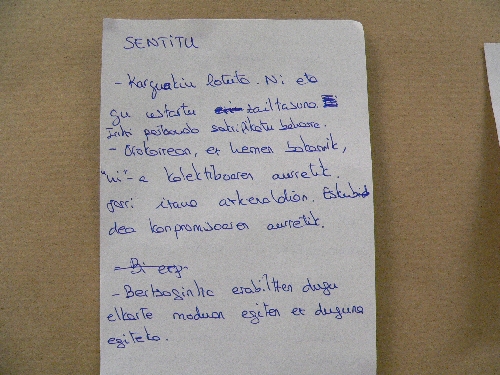 SENTITU
- Karguakin lotuta. Ni eta
gu uztartu zailtasuna.
Iritzi pertsonala sakrifikatu beharra.
- Orokorrean, ez hemen bakarrik,
"ni"-a kolektiboaren aurretik
jarri izana azkenaldian. Eskubi
dea konpromisoaren aurretik.
- Bertsogintza erabiltzen dugu
elkarte moduan egiten ez duguna
egiteko.